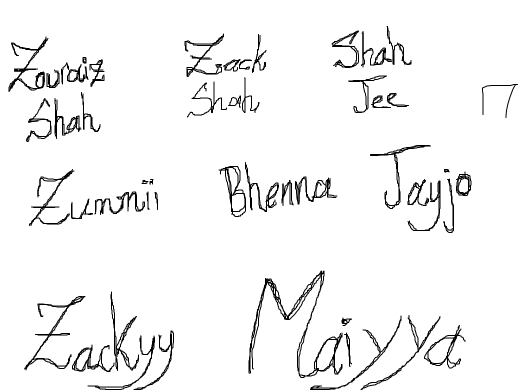 Zouraiz Zack Shah
Shah Shah Jee
Zummii Bhenna Jayjo
Zackyy Maiyya